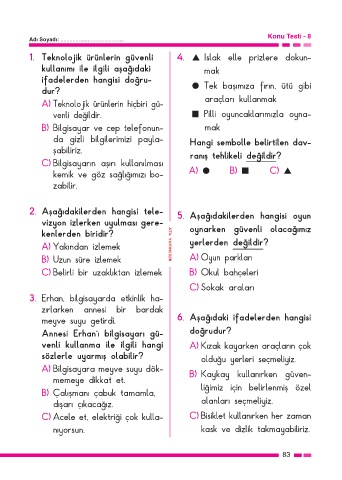 Adı Soyadı: ................................
Konu Testi - 8
1. Teknolojik ürünlerin güvenli
kullanımı ile ilgili aşağıdaki
ifadelerden hangisi doğru-
dur?
A) Teknolojik ürünlerin hiçbiri gü-
venli değildir.
B) Bilgisayar ve cep telefonun-
da gizli bilgilerimizi payla-
şabiliriz.
C) Bilgisayarın aşırı kullanılması
kemik ve göz sağlığımızı bo-
zabilir.
2. Aşağıdakilerden hangisi tele-
vizyon izlerken uyulması gere-
kenlerden biridir?
A) Yakından izlemek
B) Uzun süre izlemek
C) Belirli bir uzaklıktan izlemek
3. Erhan, bilgisayarda etkinlik ha-
zırlarken annesi bir bardak
meyve suyu getirdi.
Annesi Erhan'ı bilgisayarı gü-
venli kullanma ile ilgili hangi
sözlerle uyarmış olabilir?
A) Bilgisayara meyve suyu dök-
memeye dikkat et.
B) Çalışmanı çabuk tamamla,
dışarı çıkacağız.
C) Acele et, elektriği çok kulla-
nıyorsun.
4. ▲ Islak elle prizlere dokun-
mak
● Tek başımıza fırın, ütü gibi
araçları kullanmak
■ Pilli oyuncaklarımızla oyna-
mak
Hangi sembolle belirtilen dav-
ranış tehlikeli değildir?
A) ● B) ■ C) ▲
5. Aşağıdakilerden hangisi oyun
oynarken güvenli olacağımız
yerlerden değildir?
A) Oyun parkları
B) Okul bahçeleri
C) Sokak araları
6. Aşağıdaki ifadelerden hangisi
doğrudur?
A) Kızak kayarken araçların çok
olduğu yerleri seçmeliyiz.
B) Kaykay kullanırken güven-
liğimiz için belirlenmiş özel
alanları seçmeliyiz.
C) Bisiklet kullanırken her zaman
kask ve dizlik takmayabiliriz.
83